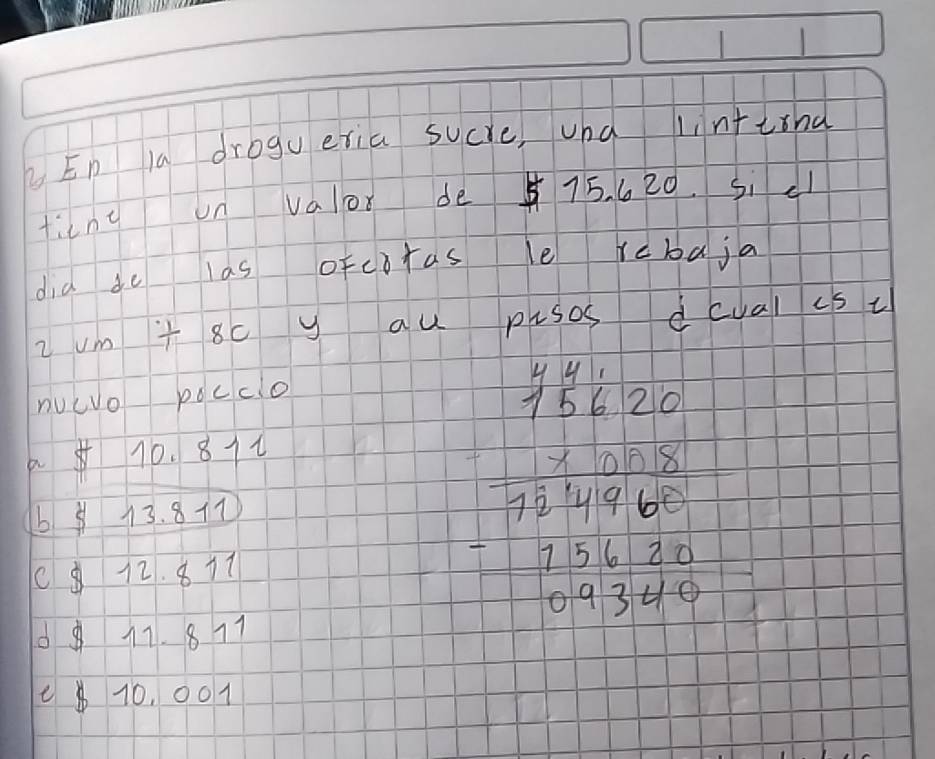 3 En la drogueria sucre, una linterna
tiene un valor de $ 15.620. si el
dia de las ofertas le rebaja
2 um + 8c y au pesos d cual es el
nuevo precio
44,
15620
a $ 10.811
x 008
b $ 13.811
124960
c $ 12.811
- 15620
09340
d $ 11.811
e $ 10.001